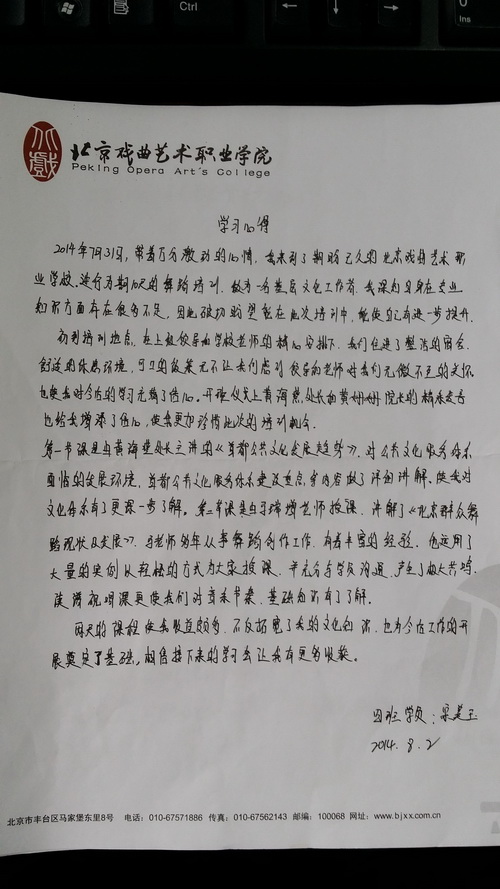 北京戏曲艺术职业学院
Peking Opera Art's College
学习心得
2014年7月31日,带着万分激动的心情,我来到了期盼已久的北京戏曲艺术职
业学校,进行为期10天的舞蹈培训,做为一名基层文化工作者,我深知自身在专业
知识方面存在很多不足,因此迫切盼望能在此次培训中,能使自己有进一步提升。
初到培训地点,在上级领导和学校老师的精心安排下,我们住进了整洁的宿舍,
舒适的休息环境,可口的饭菜无不让我们感到领导和老师对我们无微不至的关怀,
也使我对今后的学习充满了信心。开班仪式上黄海燕处长和黄珊珊院长的精彩发言
也给我增添了信心,使我更加珍惜此次的培训机会。
第一节课是由黄海燕处长主讲的《首都公共文化发展趋势》,对公共文化服务体系
面临的发展环境,首都公共文化服务体系建设重点,等内容做了详细讲解。使我对
文化体系有了更深一步了解。第二节课是由马瑞增老师授课,讲解了《北京群众舞
蹈现状及发展》,马老师多年从事舞蹈创作工作,有着丰富的经验。他运用了
大量的实例从轻松的方式为大家授课,并充分与学员沟通,产生了极大共鸣,
使我们对
有了了解。
两天的课程使我收益颇多,不仅拓宽了我的文化知识,也为今后工作的开
展奠定了基础,相信接下来的学习会让我有更多收获。
四班学员:
2014.8.2
北京市丰台区马家堡东里8号 电话:010-67571886 传真:010-67562143 邮编:100068 网址:www.bjxx.com.cn